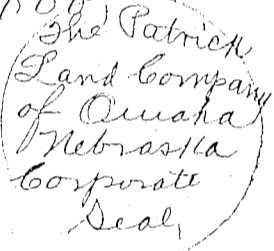 The Patrick
Land Company
of Omaha
Nebraska
Corporate
Seal,